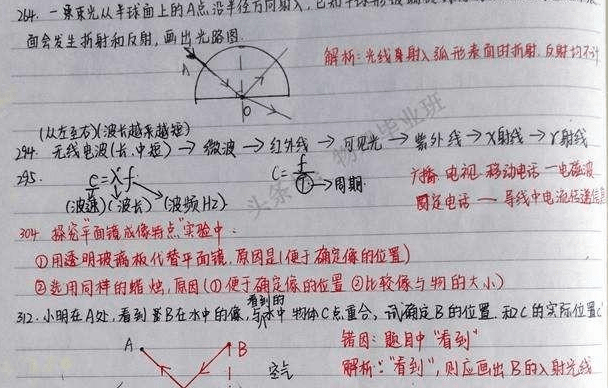 264. 一束束光从半球面上的A点沿半径方向射入,已知半球形玻璃
面会发生折射和反射,画出光路图.
解析:光线射入弧形表面时折射.反射均不计
A
O
(从左至右)(波长越来越短)
294. 无线电波(长.中.短) → 微波 → 红外线 → 可见光 → 紫外线 → X射线 → γ射线
295. c=λf
C=
f
T → 周期
广播 电视 移动电话 一电磁波
(波速)(波长) (波频Hz)
固定电话 一 导线中电流传递信息
304 探究"平面镜成像特点"实验中:
①用透明玻璃板代替平面镜.原因是(便于确定像的位置)
②选用同样的蜡烛,原因(①便于确定像的位置 ②比较像与物的大小)
312.小明在A处,看到B在水中的像,与看到的水中物体C点重合,试确定B的位置.和C的实际位置C'
错因:题目中"看到"
A
B
空气
解析:"看到",则应画出B的入射光线